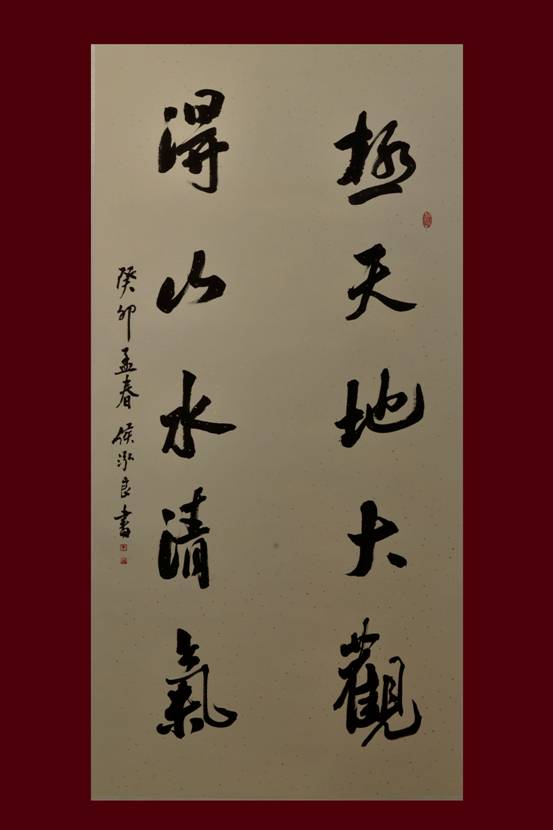 極天地大觀
得山水清氣
癸卯孟春侯泓良書